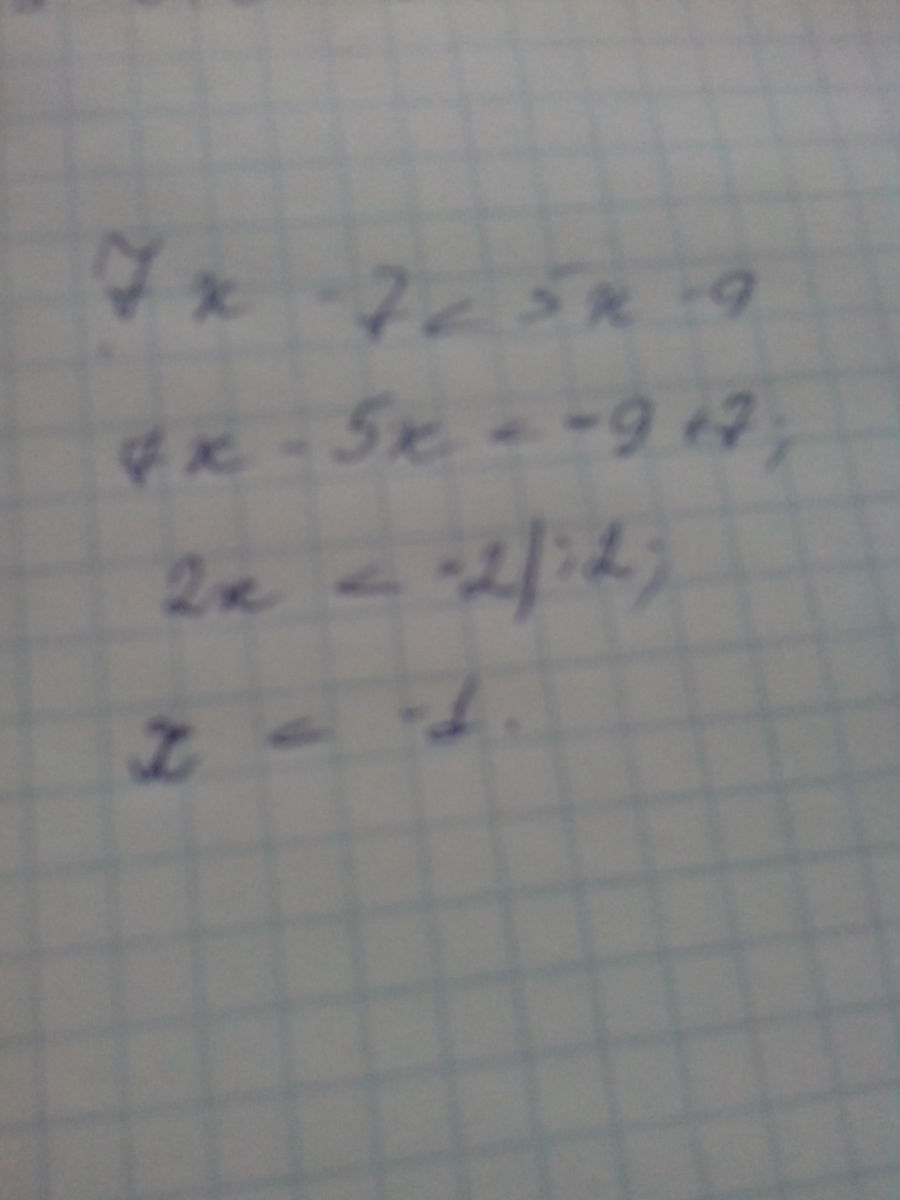 7x - 7 < 5x - 9
7x - 5x < -9 +7;
2x < -2|:2;
x < -1.